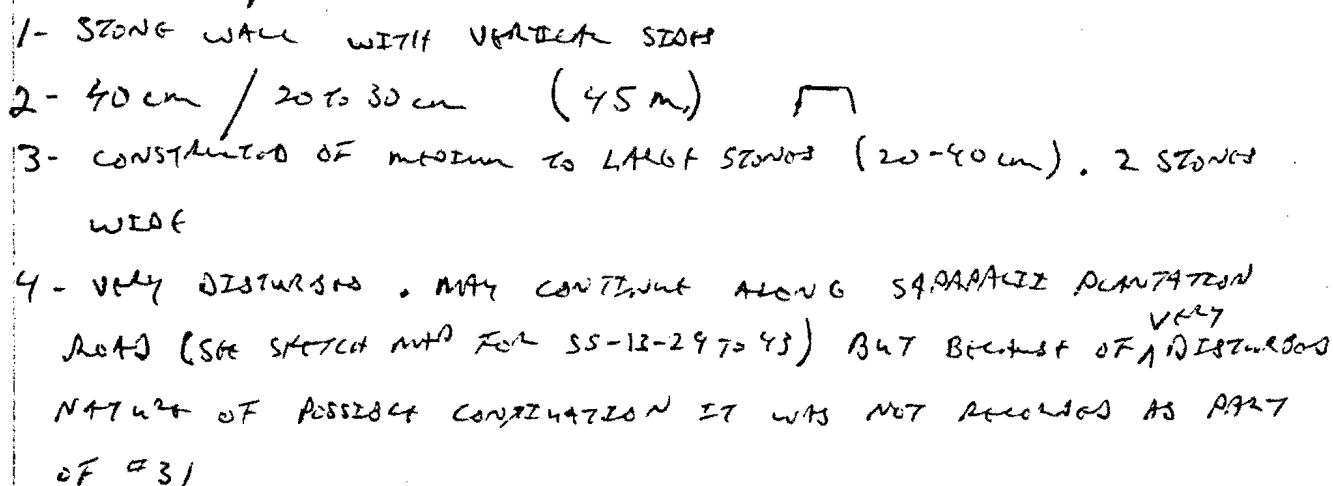 1- STONE WALL WITH VERTICAL SIDES
2- 40 cm / 20 TO 30 cm (45 m)
3- CONSTRUCTED OF MEDIUM TO LARGE STONES (20-40 cm). 2 STONES
WIDE
4- VERY DISTURBED. MAY CONTINUE ALONG PLANTATION
ROAD (SEE SKETCH MAP FOR 35-13-29 TO 43) BUT BECAUSE OF VERY DISTURBED
NATURE OF POSSIBLE CONTINUATION IT WAS NOT RECORDED AS PART
OF #31